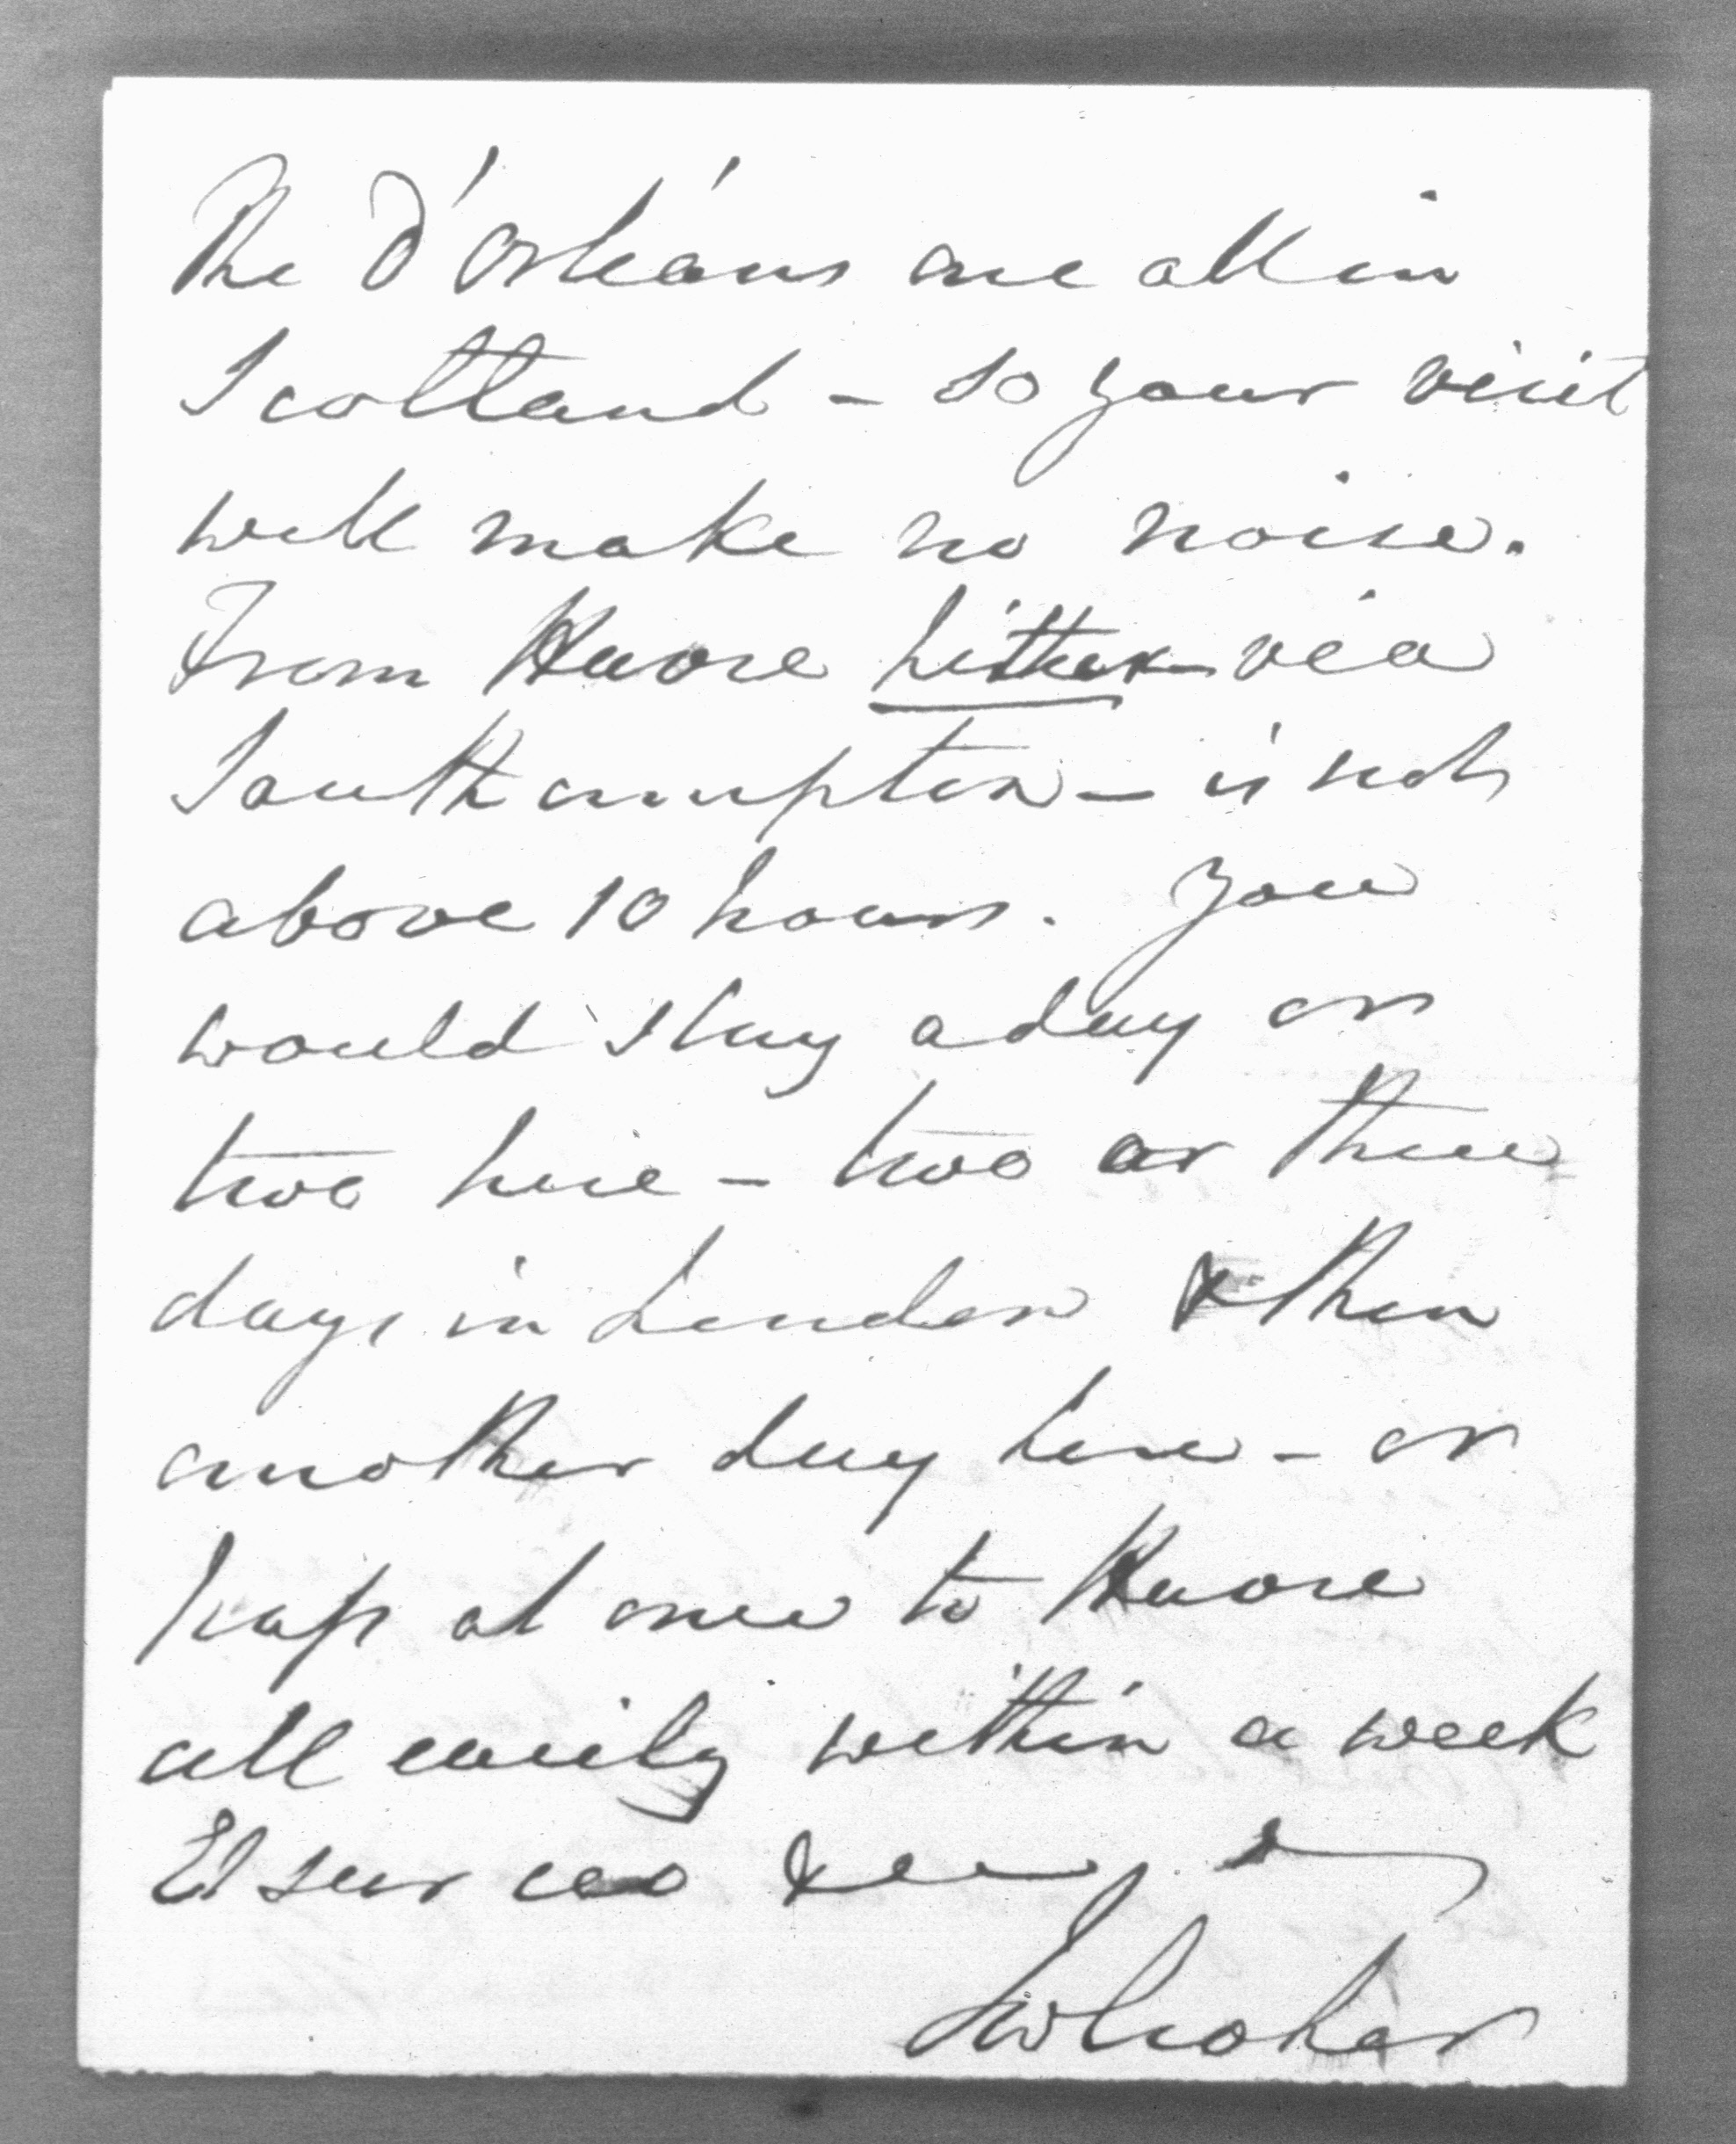 The D'Orléans are all in
Scotland – so your visit
will make no noise.
From Havre hither via
Southampton – is not
above 10 hours. You
would stay a day or
two here – two or three
days in London & then
another day here – or
at once to Havre
all easily within a week
JWCroker